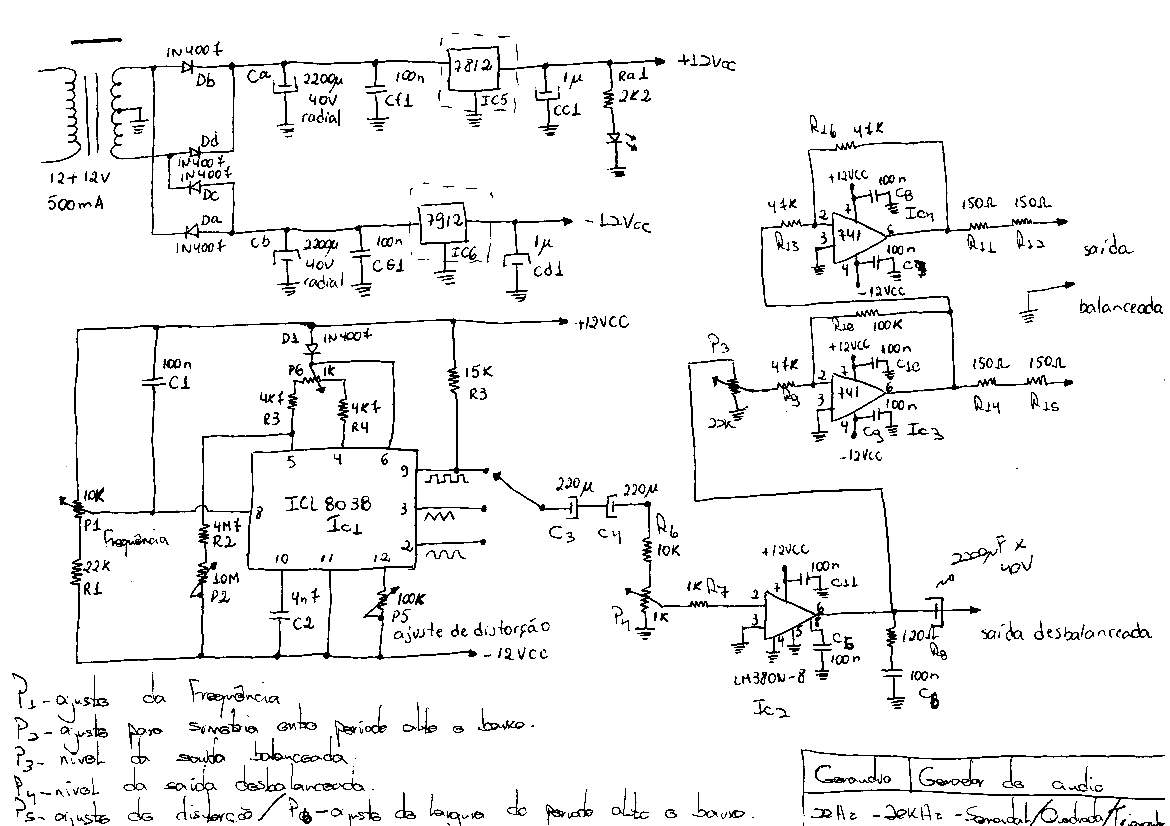 1N4007
Db
Ca
2200µ
40V
radial
100n
Cf1
7812
IC5
1µ
CC1
Ra1
2K2
+12Vcc
Dd
1N4007
1N4007
Dc
12+12V
500mA
Da
1N4007
Cb
2200µ
40V
radial
100n
7912
IC6
1µ
Cd1
-12Vcc
R16 47K
+12VCC
100n
C8
47K
R13
2
3
7
741
6
4
Ic4
100n
-12VCC
150Ω
R11
150Ω
R12
saída
balanceada
R10
100K
P3
22K
47K
R9
+12VCC
100n
C10
2
3
7
741
6
4
100n
C9
Ic3
-12VCC
150Ω
R14
150Ω
R15
+12VCC
100n
C1
D1
1N4007
P6
1K
15K
R3
4K7
R3
4K7
R4
5
4
6
ICL8038
Ic1
8
9
3
2
10
11
12
10K
P1
Frequência
22K
R1
4M7
R2
10M
P2
4n7
C2
100K
P5
ajuste de distorção
-12VCC
220µ
C3
220µ
C4
R6
10K
P4
1K
1K R7
+12VCC
100n
C11
2
3
7
6
4
5
8
LM380N-8
Ic2
C5
100n
120Ω
R8
100n
2200µF x
40V
saída desbalanceada
P1-ajuste da Frequência
P2-ajuste para simetria entre período alto e baixo.
P3-nível da saída balanceada
P4-nível da saída desbalanceada.
P5-ajuste de distorção/P6-ajuste de largura do período alto e baixo.
Gerador de audio
20Hz -20KHz -Senoidal/Quadrada/